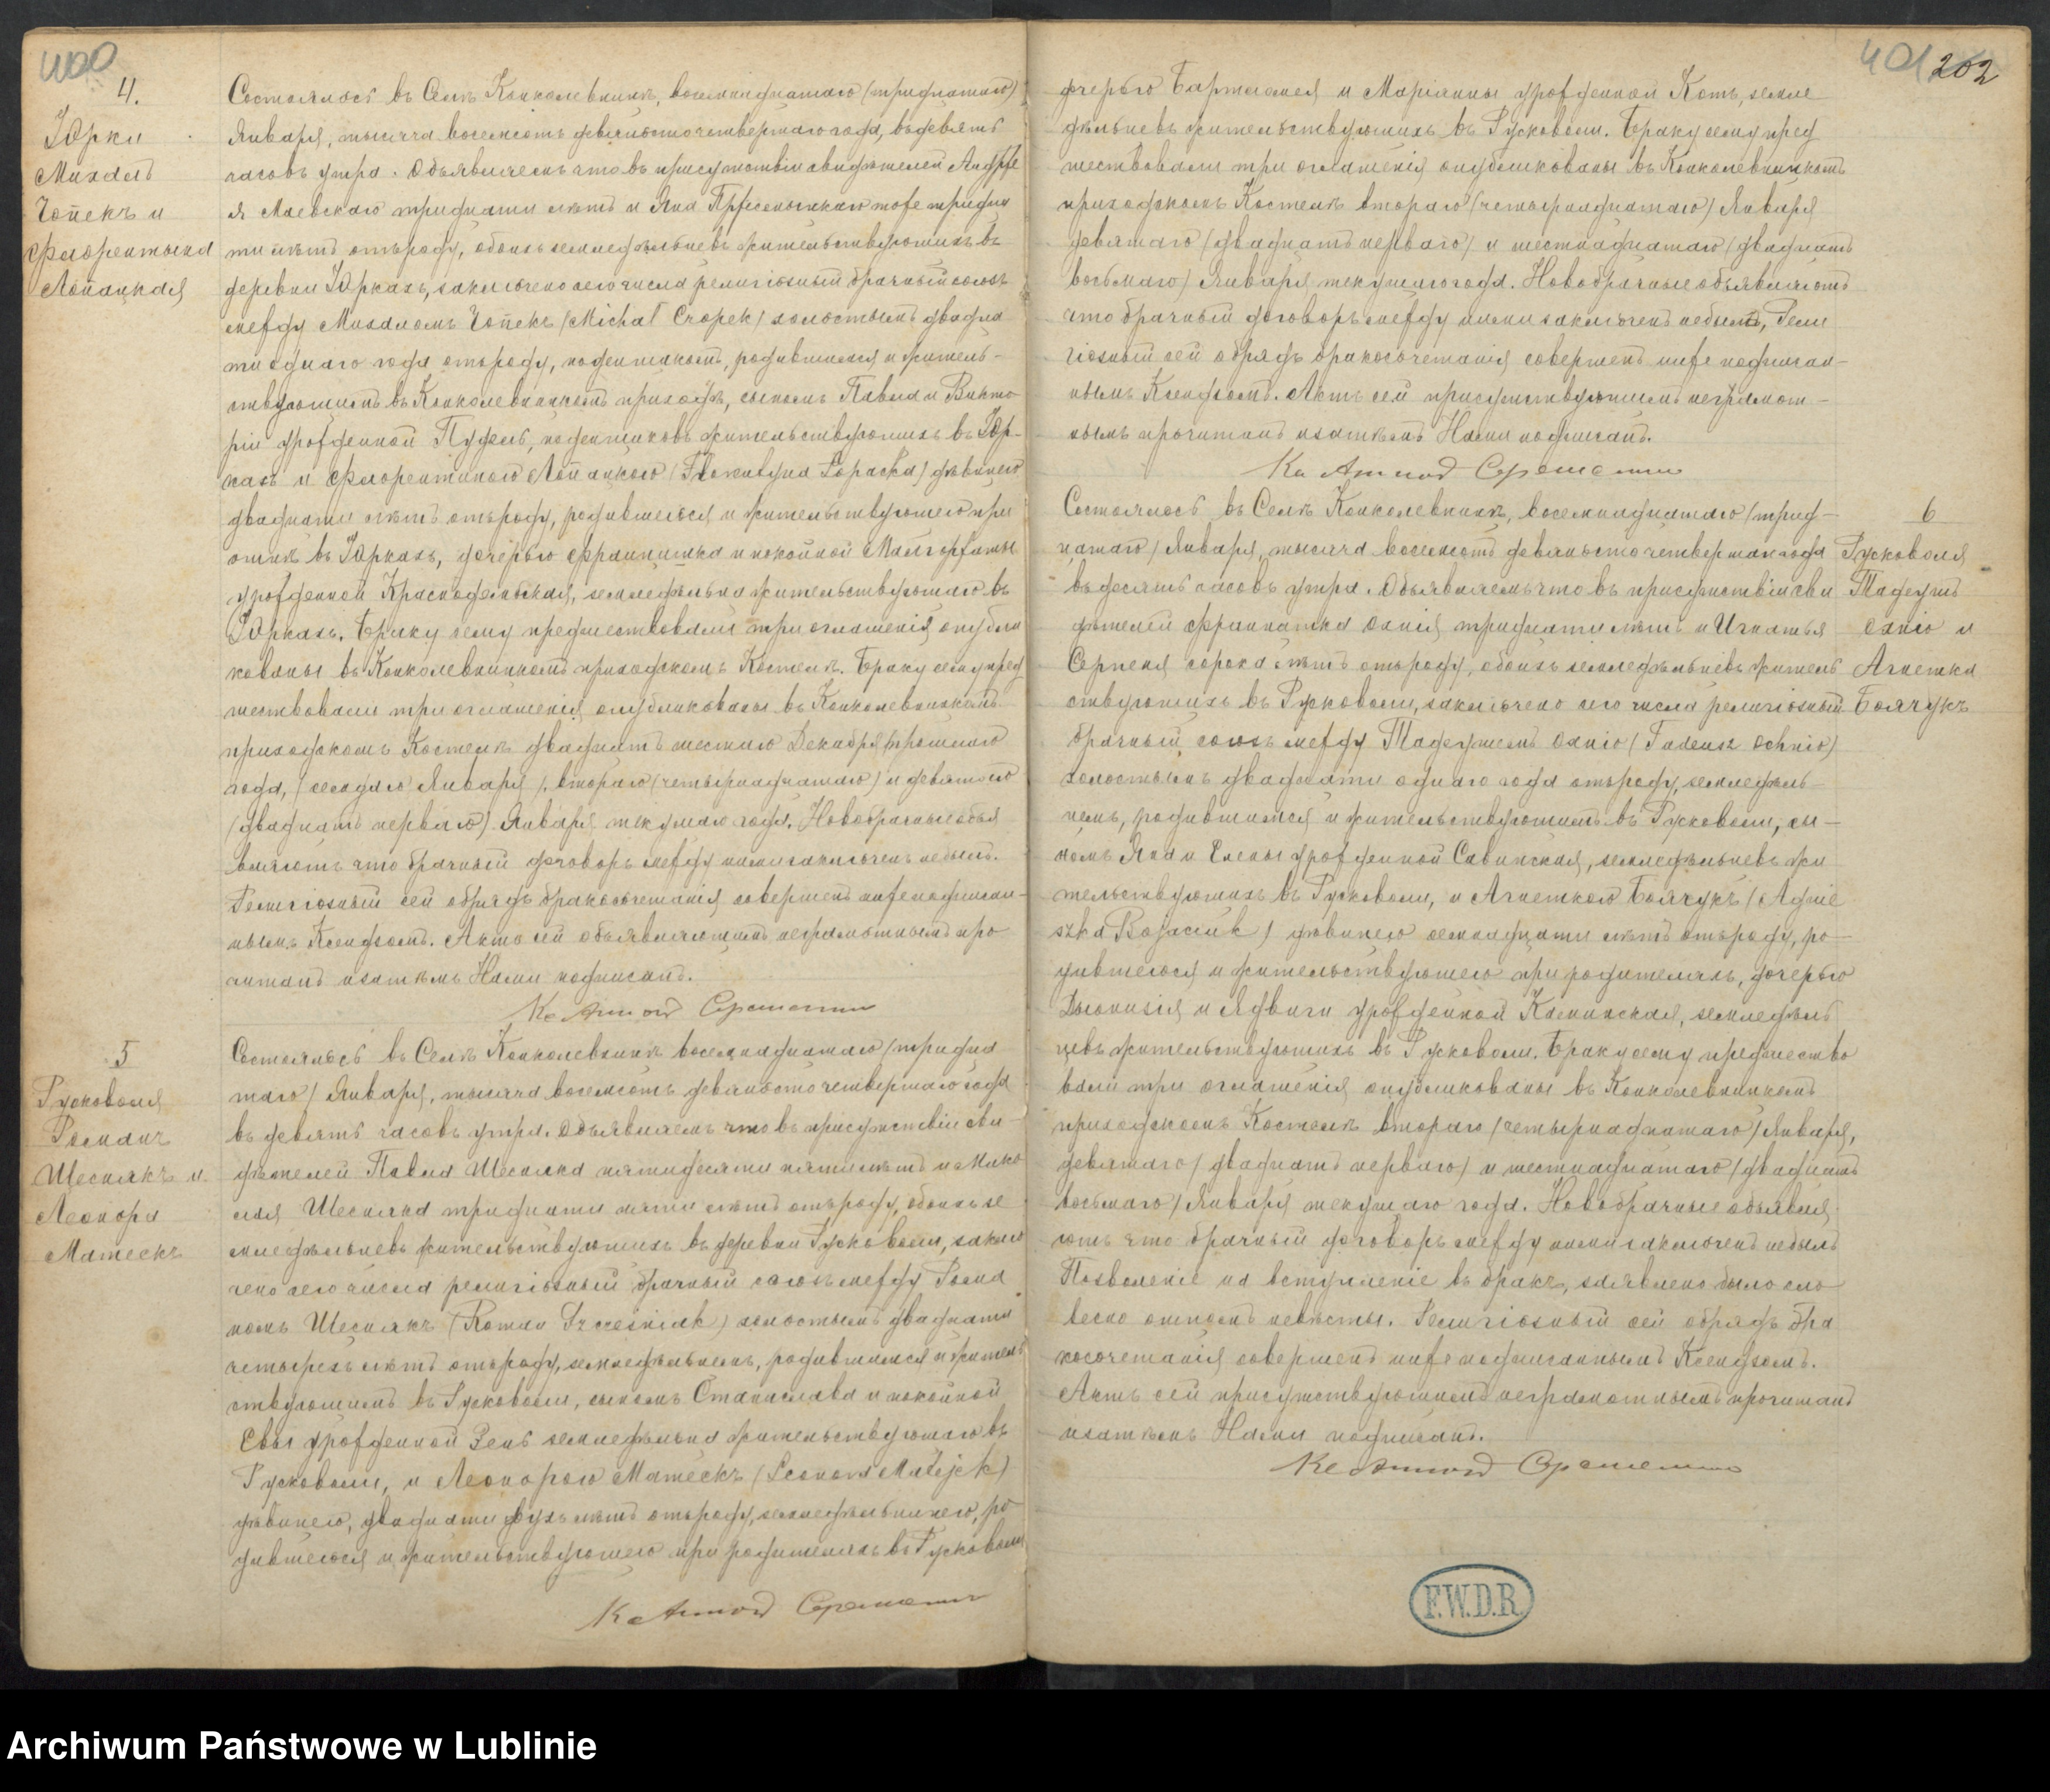 400
4.
Юрки
Михалъ
Чопекъ и
Флорентына
Лопацкая
Состоялось въ Селѣ Конколевницѣ, восемнадцатаго (тридцатаго)
Января, тысяча восемьсотъ девяносто четвертаго года, въ девять
часовъ утра. Объявляемъ что въ присутствіи свидѣтелей Андре
я Маевскаго тридцати лѣтъ и Яна тоже тридца
ти лѣтъ отъ роду, обоихъ земледѣльцевъ жительствующихъ въ
деревни Юркахъ, заключено сего числа религіозный брачный союзъ
между Михаломъ Чопекъ (Michał Czopek) холостымъ двадца
ти однаго года отъ роду, поденщикомъ, родившимся и житель-
ствующимъ въ Конколевницкомъ приходѣ, сыномъ Павла и Викто
ріи урожденной поденщиковъ жительствующихъ въ Юр-
кахъ и Флорентиною Лопацкою (Florentyna Łopacka) дѣвицею
двадцати лѣтъ отъ роду, родившеюся и жительствующею при
отцѣ въ Юркахъ, дочерью Францишка и покойной Малгоржаты
урожденной земледѣльца жительствующаго въ
Юркахъ. Браку сему предшествовали три оглашенія опубли
кованы въ Конколевницкомъ приходскомъ Костелѣ. Браку сему пред
шествовали три оглашенія опубликованы въ Конколевницкомъ
приходскомъ Костелѣ двадцать шестаго Декабря прошлаго
года, (седмаго Января), втораго (четырнадцатаго) и девятаго
(двадцать перваго) Января текущаго года. Новобрачные объя
вляютъ что брачный договоръ между ними заключенъ небылъ.
Религіозный сей обрядъ бракосочетанія совершенъ ниже подписан-
нымъ Ксендзомъ. Актъ сей объявляющимъ неграмотнымъ про
читанъ изатѣмъ Нами подписанъ.
5
Русковоля
Романъ
Щеснякъ и
Леонора
Матеекъ
Состоялось въ Селѣ Конколевницѣ восемнадцатаго (тридца
таго) Января, тысяча восемьсотъ девяносто четвертаго года
въ девять часовъ утра. Объявляемъ что въ присутствіи сви-
дѣтелей Павла Щесняка пятидесяти пяти лѣтъ и Мико
лая Щесняка тридцати пяти лѣтъ отъ роду, обоихъ зе
мледѣльцевъ жительствующихъ въ деревни Русковоли, заклю
чено сего числа религіозный брачный союзъ между Рома
номъ Щеснякъ (Roman Szcześniak) холостымъ двадцати
четырехъ лѣтъ отъ роду, земледѣльцемъ, родившимся и житель
ствующимъ въ Русковоли, сыномъ Станислава и покойной
Евы урожденной Зень земледѣльца жительствующаго въ
Русковоли, и Леонорою Матеекъ (Leonora Matejek)
дѣвицею, двадцати двухъ лѣтъ отъ роду, земледѣльницею, ро
дившеюся и жительствующею при родителяхъ въ Русковоли
401
202
дочерью Бартломея и Маріянны урожденной Котъ, земле
дѣльцевъ жительствующихъ въ Русковоли. Браку сему пред
шествовали три оглашенія опубликованы въ Конколевницкомъ
приходскомъ Костелѣ втораго (четырнадцатаго) Января
девятаго (двадцать перваго) и шестнадцатаго (двадцать
восьмаго) Января текущаго года. Новобрачные объявляютъ
что брачный договоръ между ними заключенъ небылъ, Рели
гіозный сей обрядъ бракосочетанія совершенъ ниже подписан-
нымъ Ксендзомъ. Актъ сей присутствующимъ неграмот-
нымъ прочитанъ изатѣмъ Нами подписанъ.
6
Русковоля
Тадеушъ
Охніо и
Агнешка
Боячукъ
Состоялось въ Селѣ Конколевницѣ, восемнадцатаго (трид-
цатаго) Января, тысяча восемьсотъ девяносто четвертаго года
въ десять часовъ утра. Объявляемъ что въ присутствіи сви
дѣтелей Францишка Охнія тридцати лѣтъ и Игнатья
Серпеня сорока лѣтъ отъ роду, обоихъ земледѣльцевъ житель
ствующихъ въ Русковоли, заключено сего числа религіозный
брачный союзъ между Тадеушемъ Охніо (Tadeusz Ochnio)
холостымъ двадцати однаго года отъ роду, земледѣль-
цемъ, родившимся и жительствующимъ въ Русковоли, сы-
номъ Яна и Елены урожденной Савинская, земледѣльцевъ жи
тельствующихъ въ Русковоли, и Агнешкою Боячукъ (Agnie
szka Bojaciuk) дѣвицею семнадцати лѣтъ отъ роду, ро-
дившеюся и жительствующею при родителяхъ, дочерью
Діонизія и Ядвиги урожденной земледѣль
цевъ жительствующихъ въ Русковоли. Браку сему предшество
вали три оглашенія опубликованы въ Конколевницкомъ
приходскомъ Костелѣ втораго (четырнадцатаго) Января,
девятаго (двадцать перваго) и шестнадцатаго (двадцать
восьмаго) Января текущаго года. Новобрачные объявля
ютъ что брачный договоръ между ними заключенъ небылъ
Позволеніе на вступленіе въ бракъ, заявлено было сло
весно отцомъ невѣсты. Религіозный сей обрядъ бра
косочетанія совершенъ ниже подписаннымъ Ксендзомъ.
Актъ сей присутствующимъ неграмотнымъ прочитанъ
изатѣмъ Нами подписанъ.
F.W.D.R
Archiwum Państwowe w Lublinie